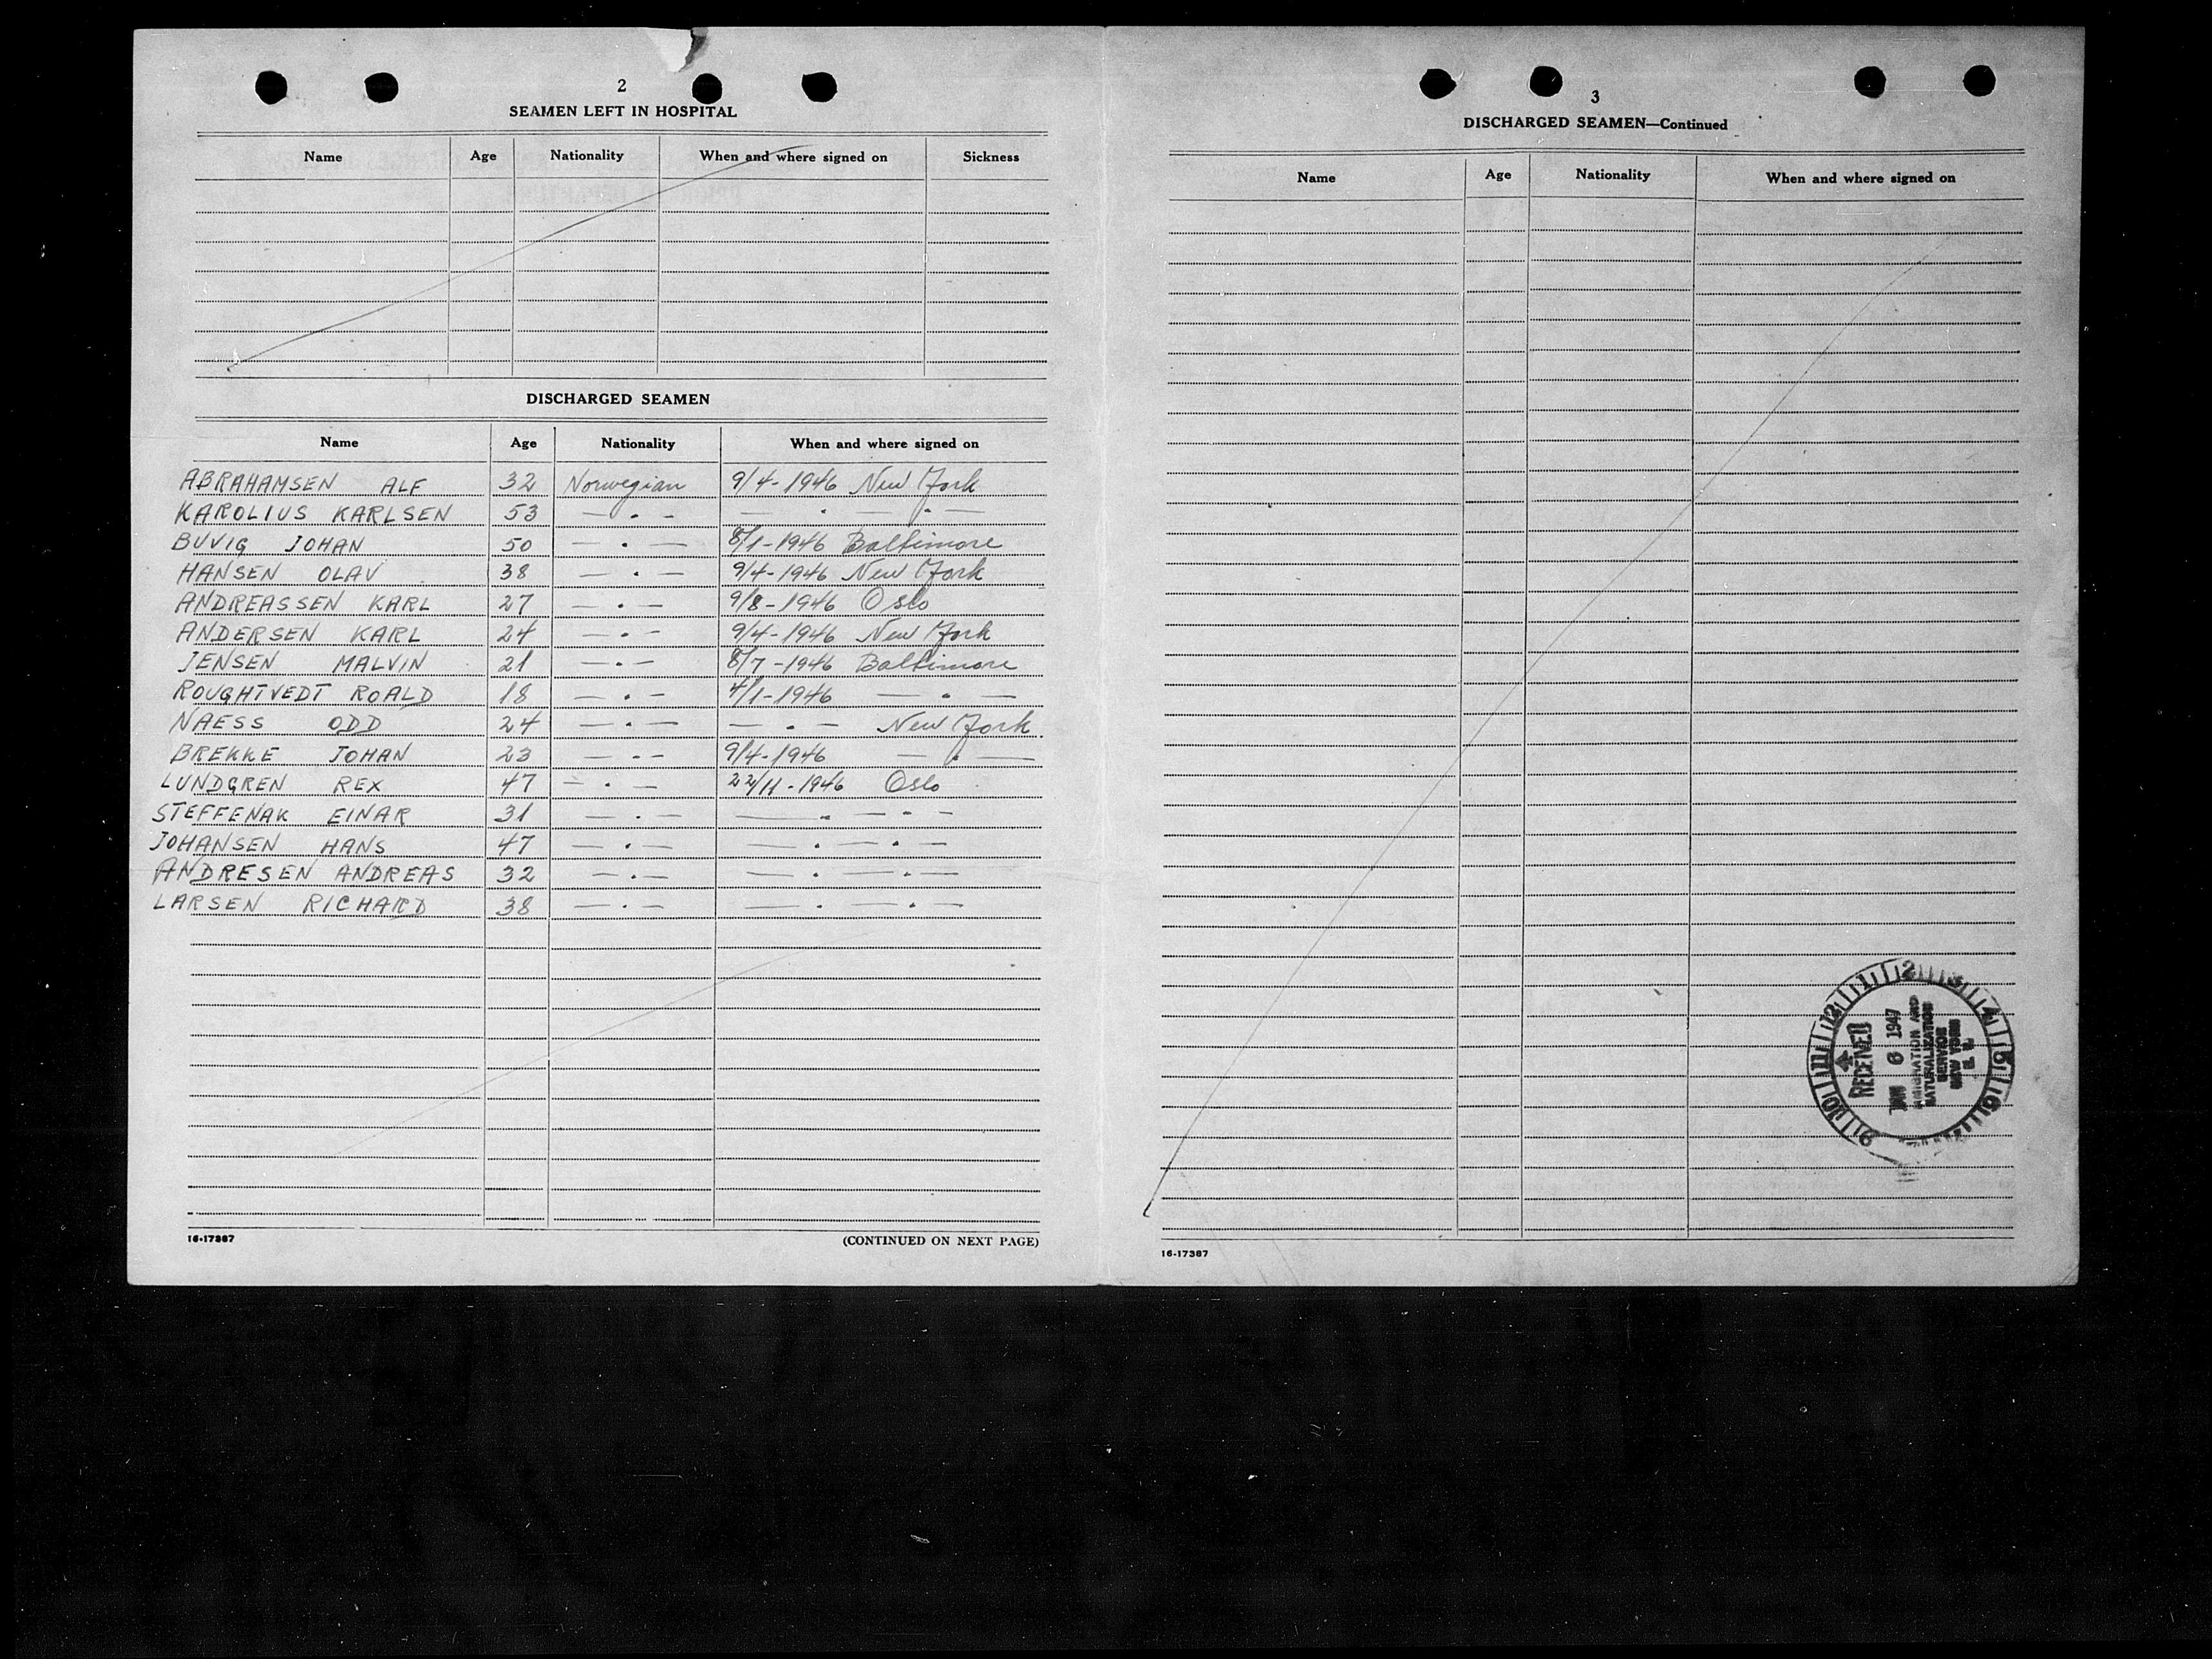 2
SEAMEN LEFT IN HOSPITAL
Name Age Nationality When and where signed on Sickness
DISCHARGED SEAMEN
Name Age Nationality When and where signed on
ABRAHAMSEN ALF 32 Norwegian 9/4-1946 New York
KAROLIUS KARLSEN 53 — . - — . — . —
BUVIG JOHAN 50 — . — 8/1-1946 Baltimore
HANSEN OLAV 38 — . — 9/4-1946 New York
ANDREASSEN KARL 27 — . — 9/8-1946 Oslo
ANDERSEN KARL 24 — . — 9/4-1946 New York
JENSEN MALVIN 21 — . — 8/7-1946 Baltimore
ROUGHTVEDT ROALD 18 — . — 4/1-1946 — . —
NAESS ODD 24 — . — — . — New York
BREKKE JOHAN 23 — . — 9/4-1946 — . —
LUNDGREN REX 47 — . — 22/11-1946 Oslo
STEFFENAK EINAR 31 — . — — . — . —
JOHANSEN HANS 47 — . — — . — . —
ANDRESEN ANDREAS 32 — . — — . — . —
LARSEN RICHARD 38 — . — — . — . —
16-17387
(CONTINUED ON NEXT PAGE)
3
DISCHARGED SEAMEN—Continued
Name Age Nationality When and where signed on
9 10 11 12 1 2 3 4 5 6
RECEIVED
JAN 6 1947
IMMIGRATION AND
NATURALIZATION
SERVICE
NEW YORK
16-17387